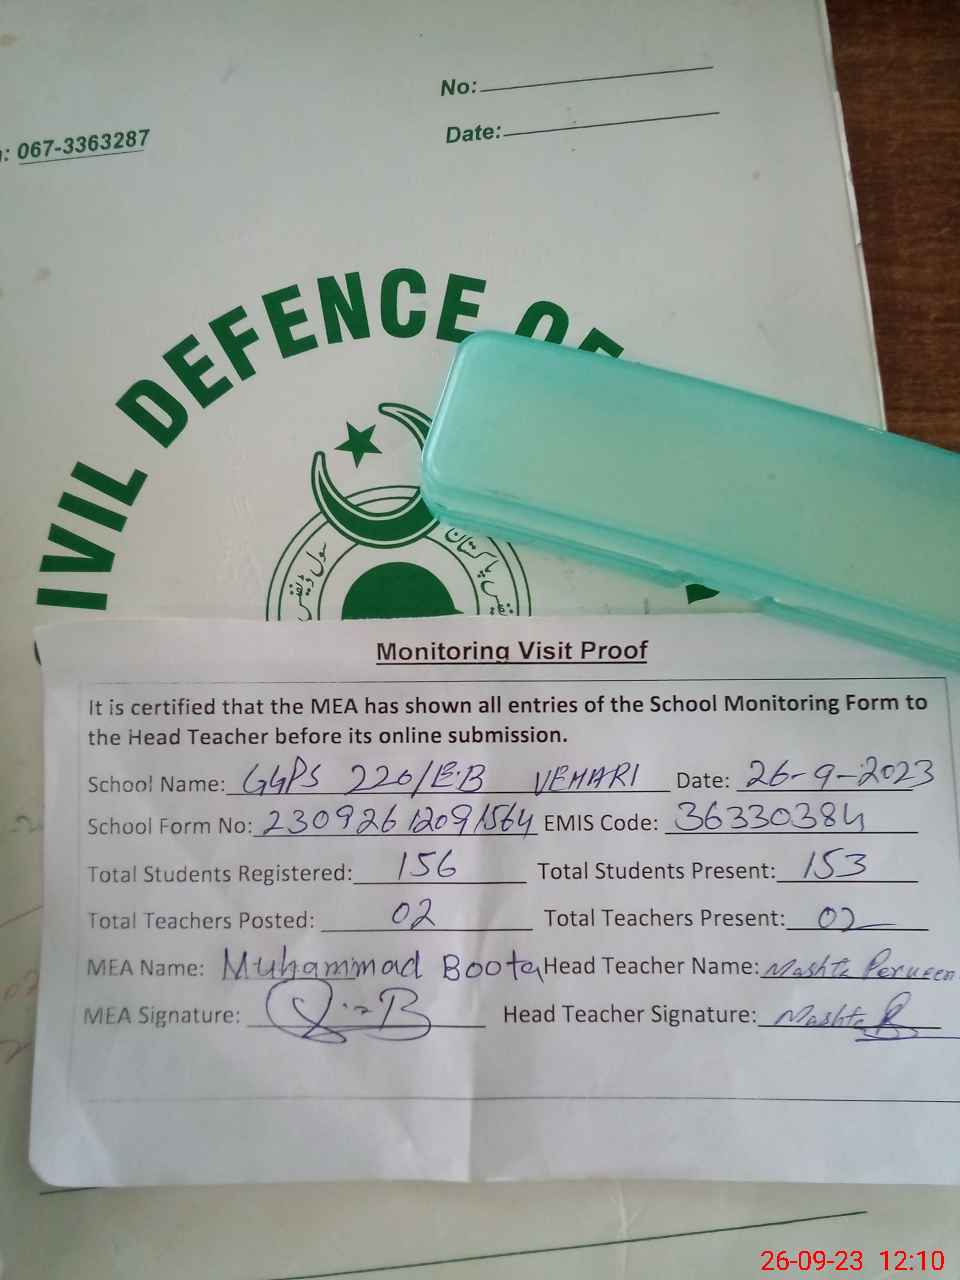 No:
Date:
: 067-3363287
IVIL DEFENCE OF
سول ڈیفنس
پاکستان
Monitoring Visit Proof
It is certified that the MEA has shown all entries of the School Monitoring Form to
the Head Teacher before its online submission.
School Name: GGPS 220/E.B VEHARI Date: 26-9-2023
School Form No: 23092612091564 EMIS Code: 36330384
Total Students Registered: 156 Total Students Present: 153
Total Teachers Posted: 02 Total Teachers Present: 02
MEA Name: Muhammad Boota Head Teacher Name: Mashta Perveen
MEA Signature: Head Teacher Signature: Mashta
26-09-23 12:10